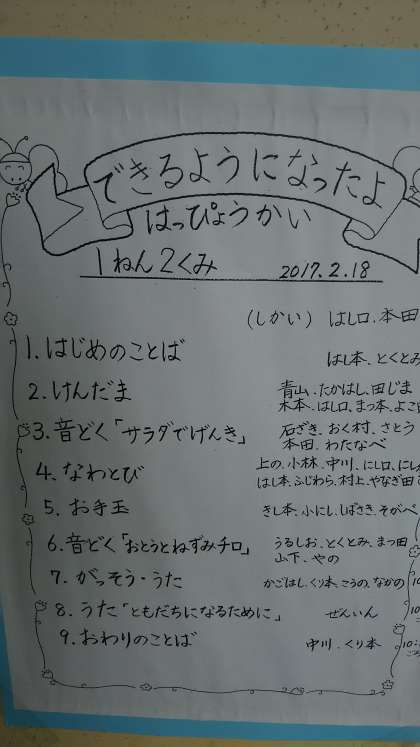 できるようになったよ
はっぴょうかい
1ねん2くみ 2017.2.18
(しかい) はし口、本田
1.はじめのことば はし本、とくとみ
2.けんだま 青山、たかはし、田じま
木本、はし口、まつ本、よこ
3.音どく「サラダでげんき」 石ざき、おく村、さとう
本田、わたなべ
4.なわとび 上の、小林、中川、にし口、にし
はし本、ふじわら、村上、やなぎ田
5.お手玉 きし本、小にし、しばさき、そがべ
6.音どく「おとうとねずみチロ」 うるしお、とくとみ、まつ田
山下、やの
7.がっそう・うた かごはし、くり本、こうの、なかの
8.うた「ともだちになるために」 ぜんいん
9.おわりのことば 中川、くり本